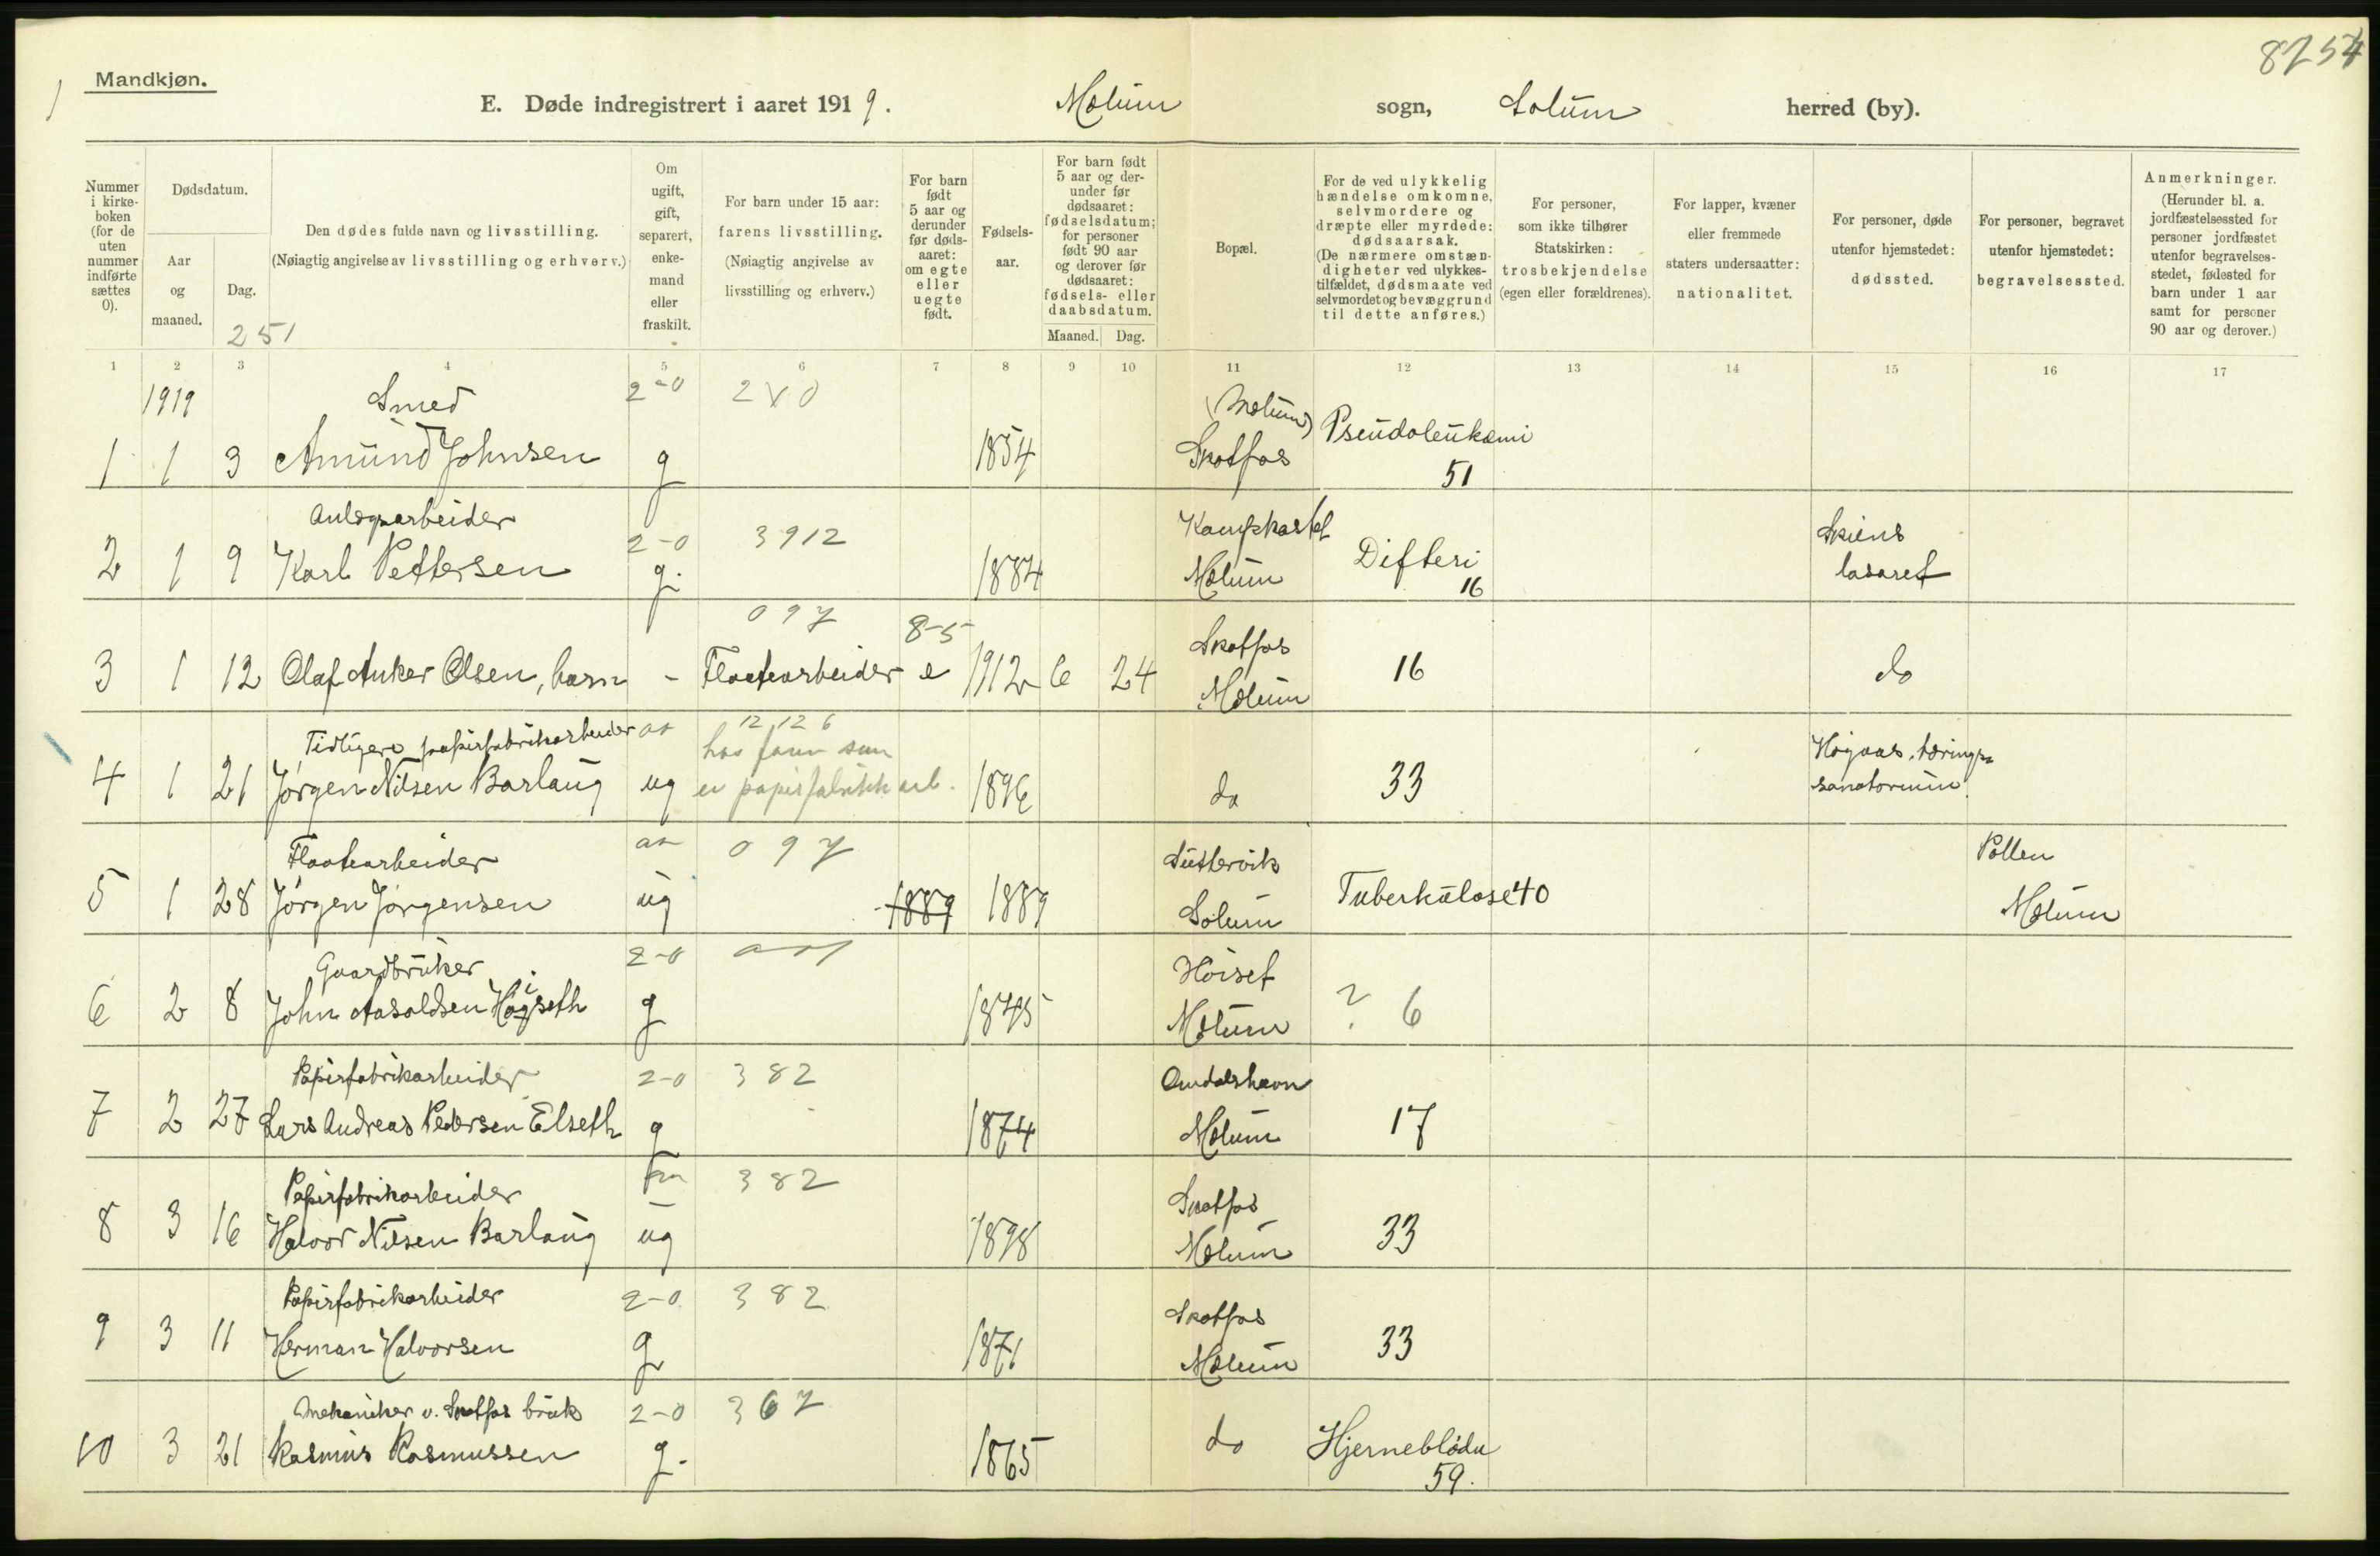 8254
1
Mandkjøn.
E. Døde indregistrert i aaret 1919. Melum sogn, Solum herred (by).
Nummer i kirkeboken (for de uten nummer indførte sættes 0).
Dødsdatum.
Aar og maaned.
Dag.
251
Den dødes fulde navn og livsstilling.
(Nøiagtig angivelse av livsstilling og erhverv.)
Om ugift, gift, separert, enkemand eller fraskilt.
For barn under 15 aar: farens livsstilling.
(Nøiagtig angivelse av livsstilling og erhverv.)
For barn født 5 aar og derunder før dødsaaret: om egte eller uegte født.
Fødselsaar.
For barn født 5 aar og derunder før dødsaaret: fødselsdatum; for personer født 90 aar og derover før dødsaaret: fødsels- eller daabsdatum.
Maaned. Dag.
Bopæl.
For de ved ulykkelig hændelse omkomne, selvmordere og dræpte eller myrdede: dødsaarsak.
(De nærmere omstændigheter ved ulykkestilfældet, dødsmaate ved selvmordet og bevæggrund til dette anføres.)
For personer, som ikke tilhører Statskirken: trosbekjendelse (egen eller forældrenes).
For lapper, kvæner eller fremmede staters undersaatter: nationalitet.
For personer, døde utenfor hjemstedet: dødssted.
For personer, begravet utenfor hjemstedet: begravelsessted.
Anmerkninger.
(Herunder bl. a. jordfæstelsessted for personer jordfæstet utenfor begravelsesstedet, fødested for barn under 1 aar samt for personer 90 aar og derover.)
1 2 3 4 5 6 7 8 9 10 11 12 13 14 15 16 17
1919 Smed 2-0 2V0 (Melum)
1 1 3 Amund Johnsen g 1854 Skotfos Pseudoleukæmi 51
Anlegsarbeider 2-0 3912 Kampkastet Skiens
2 1 9 Karl Pettersen g. 1884 Melum Difteri 16 lasaret
097 8-5 Skotfos
3 1 12 Olaf Anker Olsen, barn - Fløtearbeider e 1912 6 24 Melum 16 do
Tidligere papirfabrikarbeider 12,126 Høgaas tærings
hos faren som
4 1 21 Jørgen Nilsen Barlaug ug er papirfabrikk arb. 1896 do 33 sanatorium
Fløtearbeider 097 Pollen
5 1 28 Jørgen Jørgensen ug 1889 1889 Solum Tuberkulose 40 Melum
Gaardbruker 2-0 Høiset
6 2 8 John Aasoldsen Høiseth g 1845 Melum ? 6
Papirfabrikarbeider 2-0 382 Omdalshavn
7 2 27 Lars Andreas Pedersen Elseth g 1874 Melum 17
Papirfabrikarbeider 382 Skotfos
8 3 16 Halvor Nilsen Barlaug ug 1898 Melum 33
Papirfabrikarbeider 2-0 382 Skotfos
9 3 11 Herman Halvorsen g 1871 Melum 33
Mekaniker v. Skotfos bruk 2-0 367
10 3 21 Rasmus Rasmussen g. 1865 do Hjerneblødn 59.